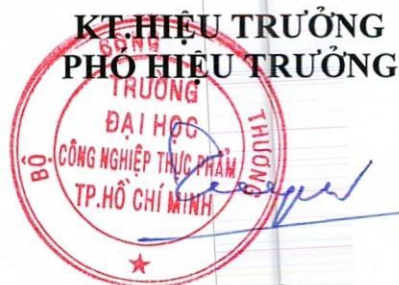 KT.HIỆU TRƯỞNG
PHÓ HIỆU TRƯỞNG
BỘ CÔNG THƯƠNG
TRƯỜNG
ĐẠI HỌC
CÔNG NGHIỆP THỰC PHẨM
TP.HỒ CHÍ MINH